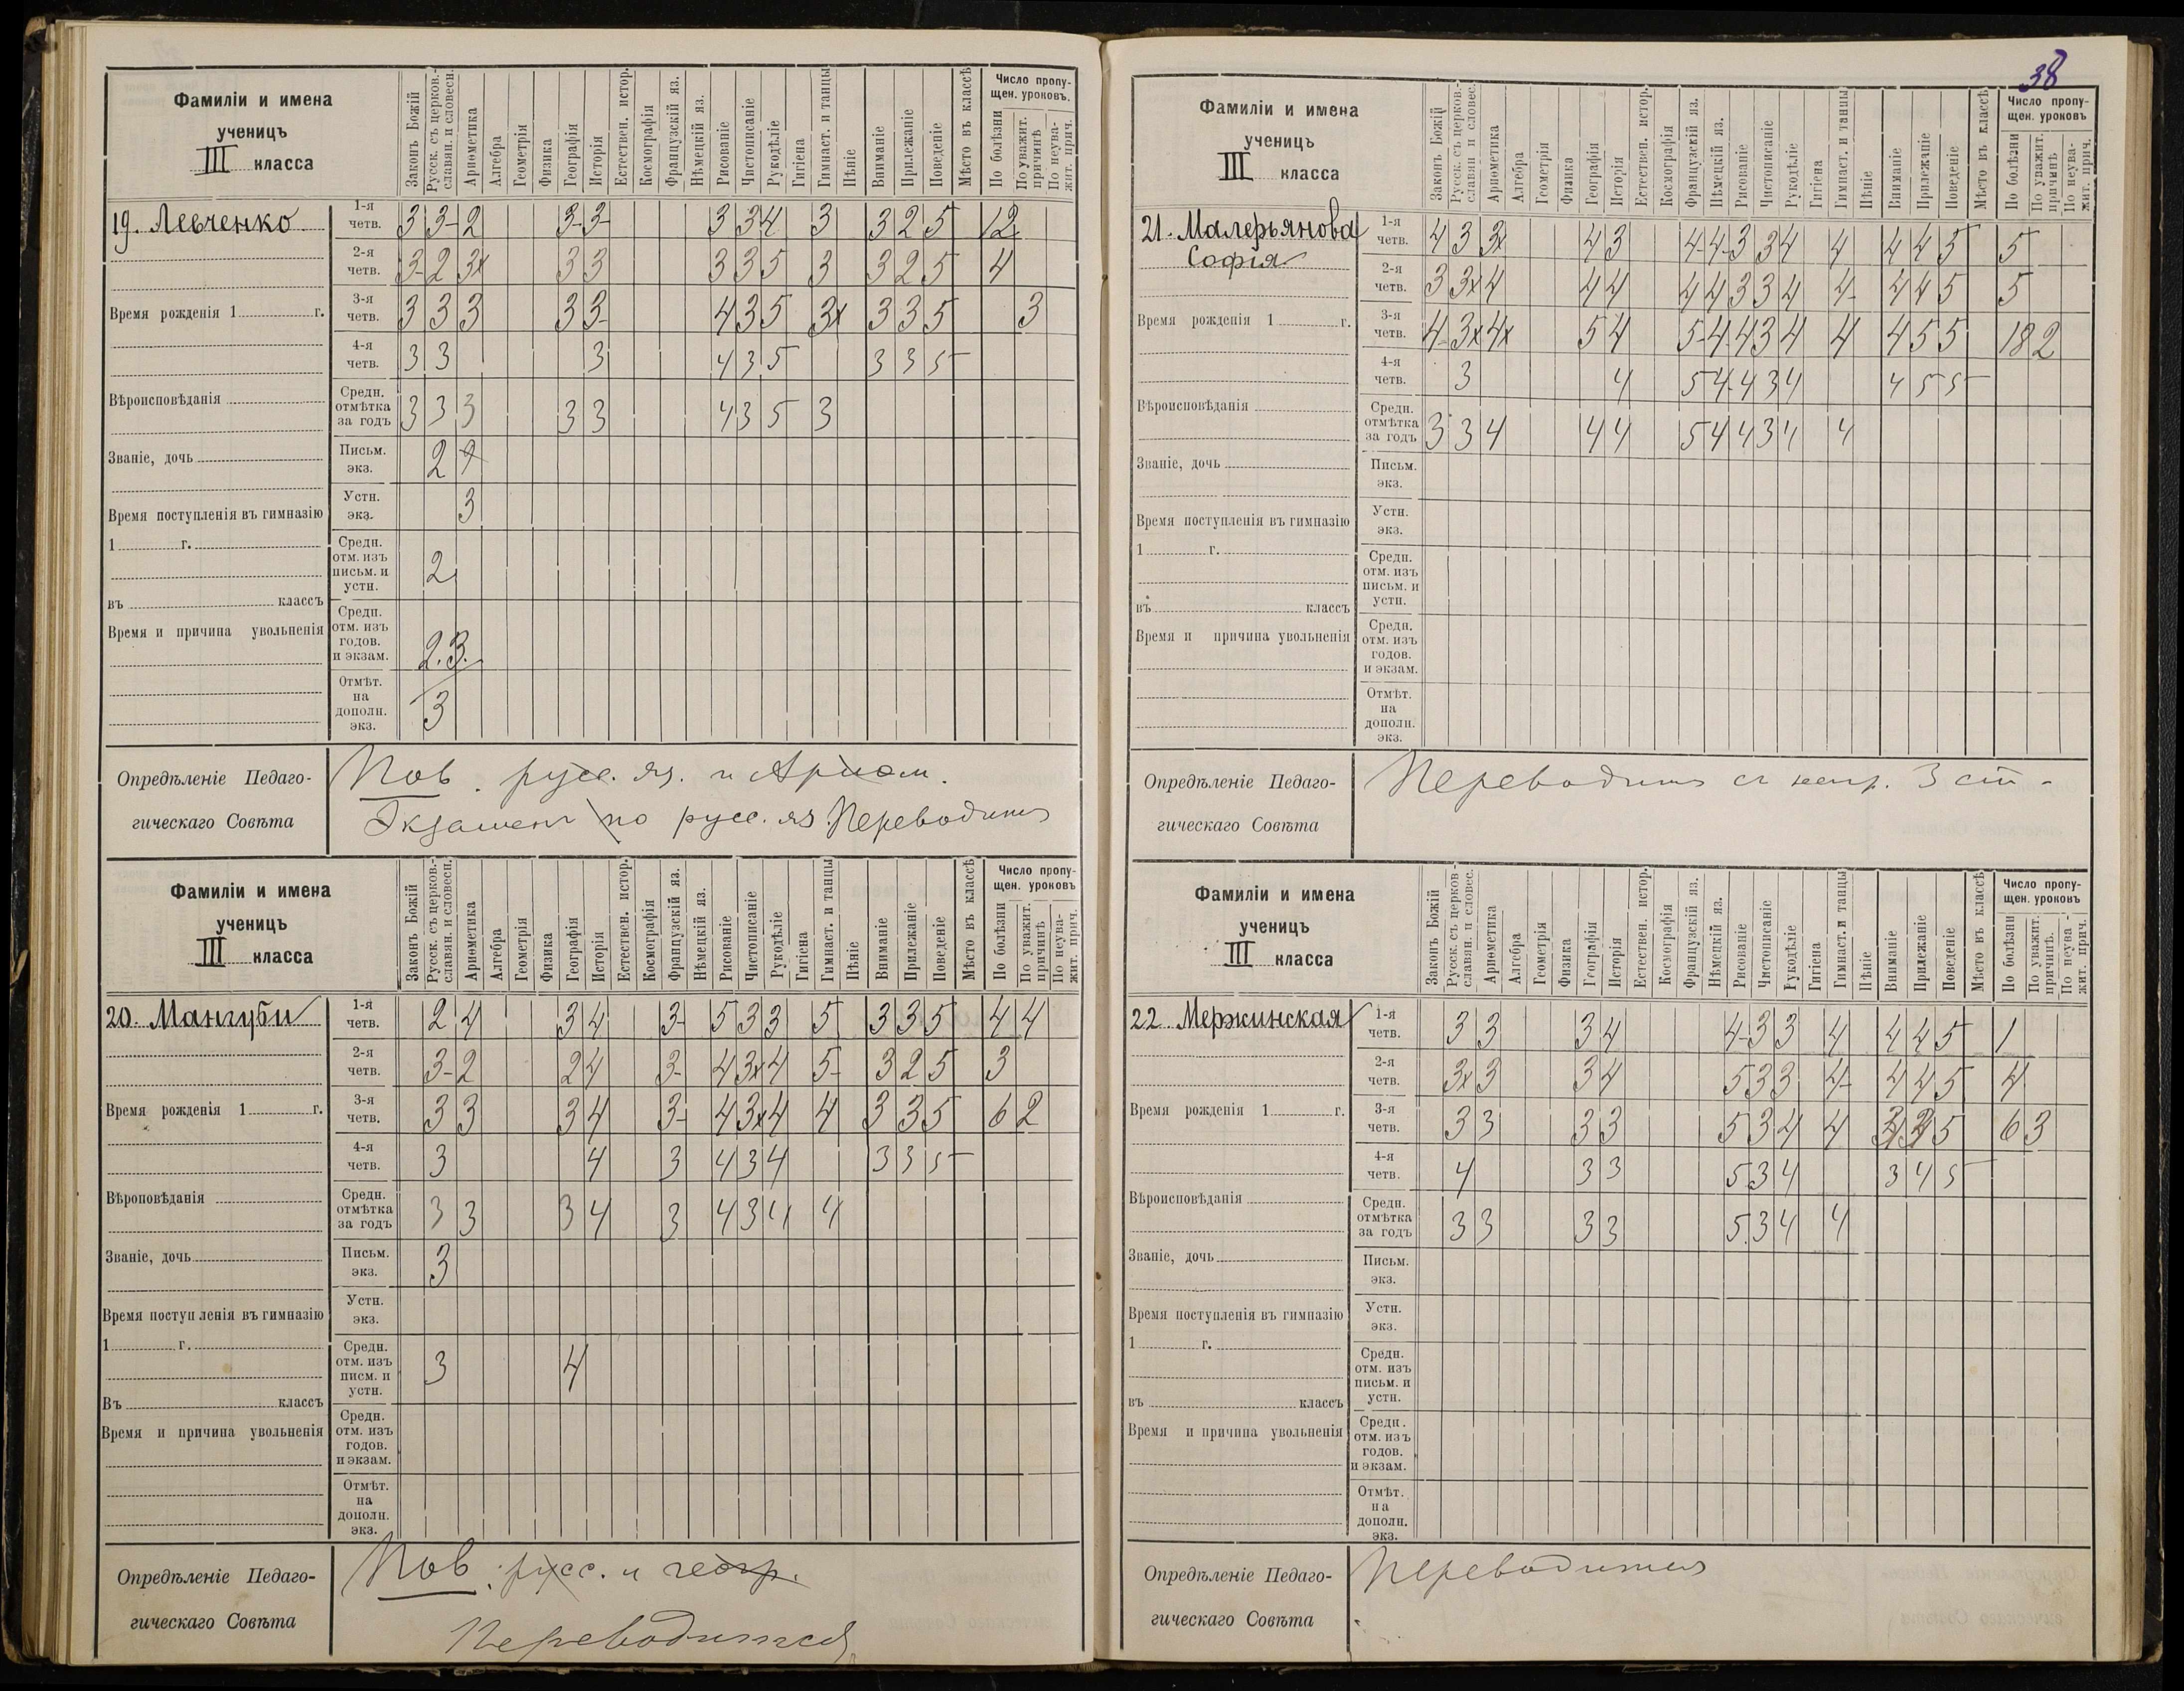 38
Фамиліи и имена
ученицъ
III класса
Законъ Божій
Русск. съ церков.-
славян. и словесн.
Ариѳметика
Алгебра
Геометрія
Физика
Географія
Исторія
Естествен. истор.
Космографія
Французскій яз.
Нѣмецкій яз.
Рисованіе
Чистописаніе
Рукодѣліе
Гигіена
Гимнаст. и танцы
Пѣніе
Вниманіе
Прилежаніе
Поведеніе
Мѣсто въ классѣ
Число пропу-
щен. уроковъ.
По болѣзни
По уважит.
причинѣ
По неува-
жит. прич.
19. Левченко
1-я четв. 3 3- 2 3- 3- 3 3 4 3 3 2 5 12
2-я четв. 3- 2 3х 3 3 3 3 5 3 3 2 5 4
Время рожденія 1 г.
3-я четв. 3 3 3 3 3- 4 3 5 3х 3 3 5 3
4-я четв. 3 3 3 4 3 5 3 3 5
Вѣроисповѣданія
Средн. отмѣтка за годъ 3 3 3 3 3 4 3 5 3
Званіе, дочь
Письм. экз. 2 2
Время поступленія въ гимназію
Устн. экз. 3
1 г.
Средн. отм. изъ письм. и устн. 2
въ классъ
Время и причина увольненія
Средн. отм. изъ годов. и экзам. 2.3.
Отмѣт. на дополн. экз. 3
Опредѣленіе Педаго-
гическаго Совѣта
Пов. русс. яз. и Ариѳм.
Экзаменъ по русс. яз. Переводится
Фамиліи и имена
ученицъ
III класса
Законъ Божій
Русск. съ церков.-
славян. и словесн.
Ариѳметика
Алгебра
Геометрія
Физика
Географія
Исторія
Естествен. истор.
Космографія
Французскій яз.
Нѣмецкій яз.
Рисованіе
Чистописаніе
Рукодѣліе
Гигіена
Гимнаст. и танцы
Пѣніе
Вниманіе
Прилежаніе
Поведеніе
Мѣсто въ классѣ
Число пропу-
щен. уроковъ
По болѣзни
По уважит.
причинѣ
По неува-
жит. прич.
20. Мангуби
1-я четв. 2 4 3 4 3- 5 3 3 5 3 3 5 4 4
2-я четв. 3- 2 2 4 3- 4 3х 4 5- 3 2 5 3
Время рожденія 1 г.
3-я четв. 3 3 3 4 3- 4 3х 4 4 3 3 5 6 2
4-я четв. 3 4 3 4 3 4 3 3 5
Вѣроповѣданія
Средн. отмѣтка за годъ 3 3 3 4 3 4 3 4 4
Званіе, дочь
Письм. экз. 3
Время поступленія въ гимназію
Устн. экз.
1 г.
Средн. отм. изъ писм. и устн. 3 4
Въ классъ
Время и причина увольненія
Средн. отм. изъ годов. и экзам.
Отмѣт. на дополн. экз.
Опредѣленіе Педаго-
гическаго Совѣта
Пов. русс. и геогр.
Переводится
Фамиліи и имена
ученицъ
III класса
Законъ Божій
Русск. съ церков.-
славян и словес.
Ариѳметика
Алгебра
Геометрія
Физика
Географія
Исторія
Естествен. истор.
Космографія
Французскій яз.
Нѣмецкій яз.
Рисованіе
Чистописаніе
Рукодѣліе
Гигіена
Гимпаст. и танцы
Пѣніе
Вниманіе
Прилежаніе
Поведеніе
Мѣсто въ классѣ
Число пропу-
щен. уроковъ
По болѣзни
По уважит.
причинѣ
По неува-
жит. прич.
21. Малерьянова
Софія
1-я четв. 4 3 3х 4 3 4- 4- 3 3 4 4 4 4 5 5
2-я четв. 3 3х 4 4 4 4 4 3 3 4 4- 4 4 5 5
Время рожденія 1 г.
3-я четв. 4- 3х 4х 5 4 5- 4- 4 3 4 4 4 5 5 18 2
4-я четв. 3 4 5 4 4 3 4 4 5 5
Вѣроисповѣданія
Средн. отмѣтка за годъ 3 3 4 4 4 5 4 4 3 4 4
Званіе, дочь
Письм. экз.
Время поступленія въ гимназію
Устн. экз.
1 г.
Средн. отм. изъ письм. и устн.
въ классъ
Время и причина увольненія
Средн. отм. изъ годов. и экзам.
Отмѣт. на дополн. экз.
Опредѣленіе Педаго-
гическаго Совѣта
Переводится съ 3 ст-
Фамиліи и имена
ученицъ
III класса
Законъ Божій
Русск. съ церков-
славян. и словес.
Ариѳметика
Алгебра
Геометрія
Физика
Географія
Исторія
Естествен. истор.
Космографія
Французскій яз.
Нѣмецкій яз.
Рисованіе
Чистописаніе
Рукодѣліе
Гигіена
Гимнаст. и танцы
Пѣніе
Вниманіе
Прилежаніе
Поведеніе
Мѣсто въ классѣ
Число пропу-
щен. уроковъ
По болѣзни
По уважит.
причинѣ.
По неува-
жит. прич.
22. Мержинская
1-я четв. 3 3 3 4 4- 3 3 4 4 4 5 1
2-я четв. 3х 3 3 4 5 3 3 4- 4 4 5 4
Время рожденія 1 г.
3-я четв. 3 3 3 3 5 3 4 4 5 6 3
4-я четв. 4 3 3 5 3 4 3 4 5
Вѣроисповѣданія
Средн. отмѣтка за годъ 3 3 3 3 5 3 4 4
Званіе, дочь
Письм. экз.
Время поступленія въ гимназію
Устн. экз.
1 г.
Средн. отм. изъ письм. и устн.
въ классъ
Время и причина увольненія
Средн. отм. изъ годов. и экзам.
Отмѣт. на дополн. экз.
Опредѣленіе Педаго-
гическаго Совѣта
Переводится